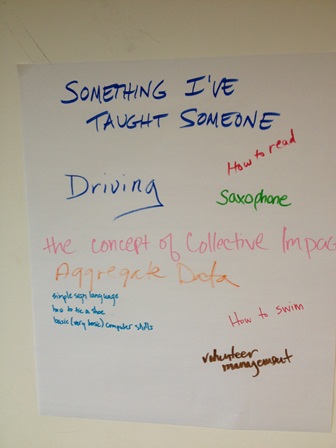 SOMETHING I'VE
TAUGHT SOMEONE
How to read
Driving
Saxophone
the concept of Collective Impac
Aggregate Data
simple sign language
how to tie a shoe
basic (very basic) computer skills
How to swim
volunteer
management